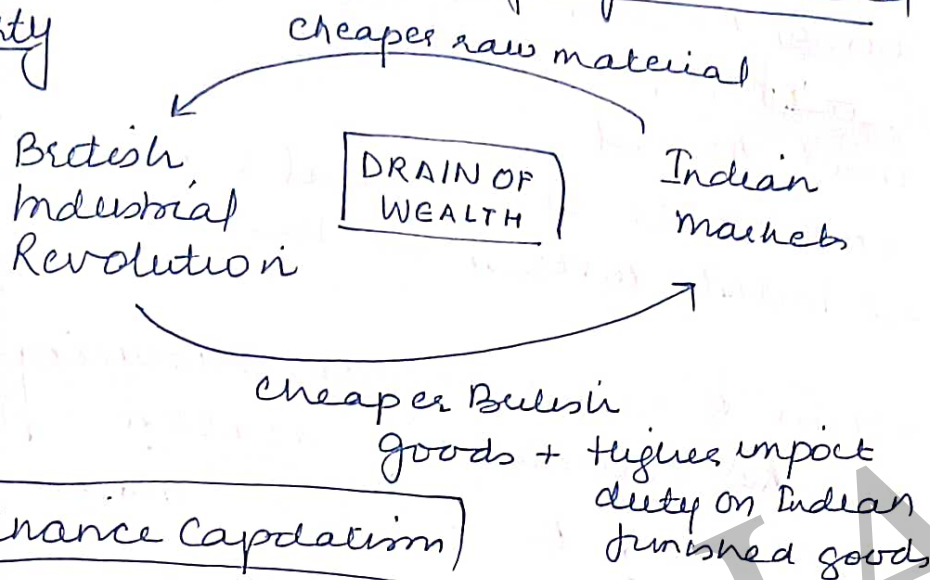 ty
Cheaper raw material
British
Industrial
Revolution
DRAIN OF
WEALTH
Indian
Markets
Cheaper British
goods + Higher import
duty on Indian
funished goods
nance Capdatism